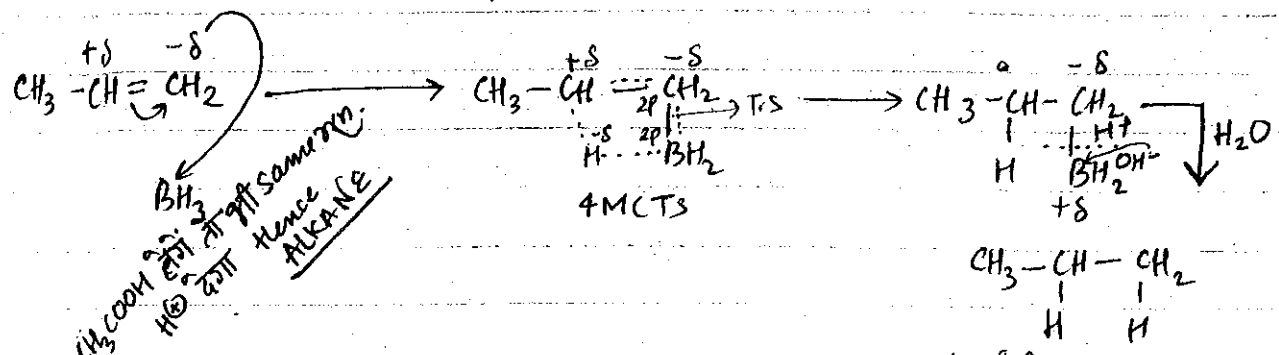 +δ -δ
CH3 -CH = CH2
BH3
CH3COOH लेंगे तो भी same rxn.
H⊕ देगा Hence
ALKANE
+δ -δ
CH3 - CH = CH2
2p
2p
-δ
H BH2
T.S
4MCTS
-δ
CH3 - CH - CH2
H H+
BH2 OH-
+δ
H2O
CH3 - CH - CH2
H H